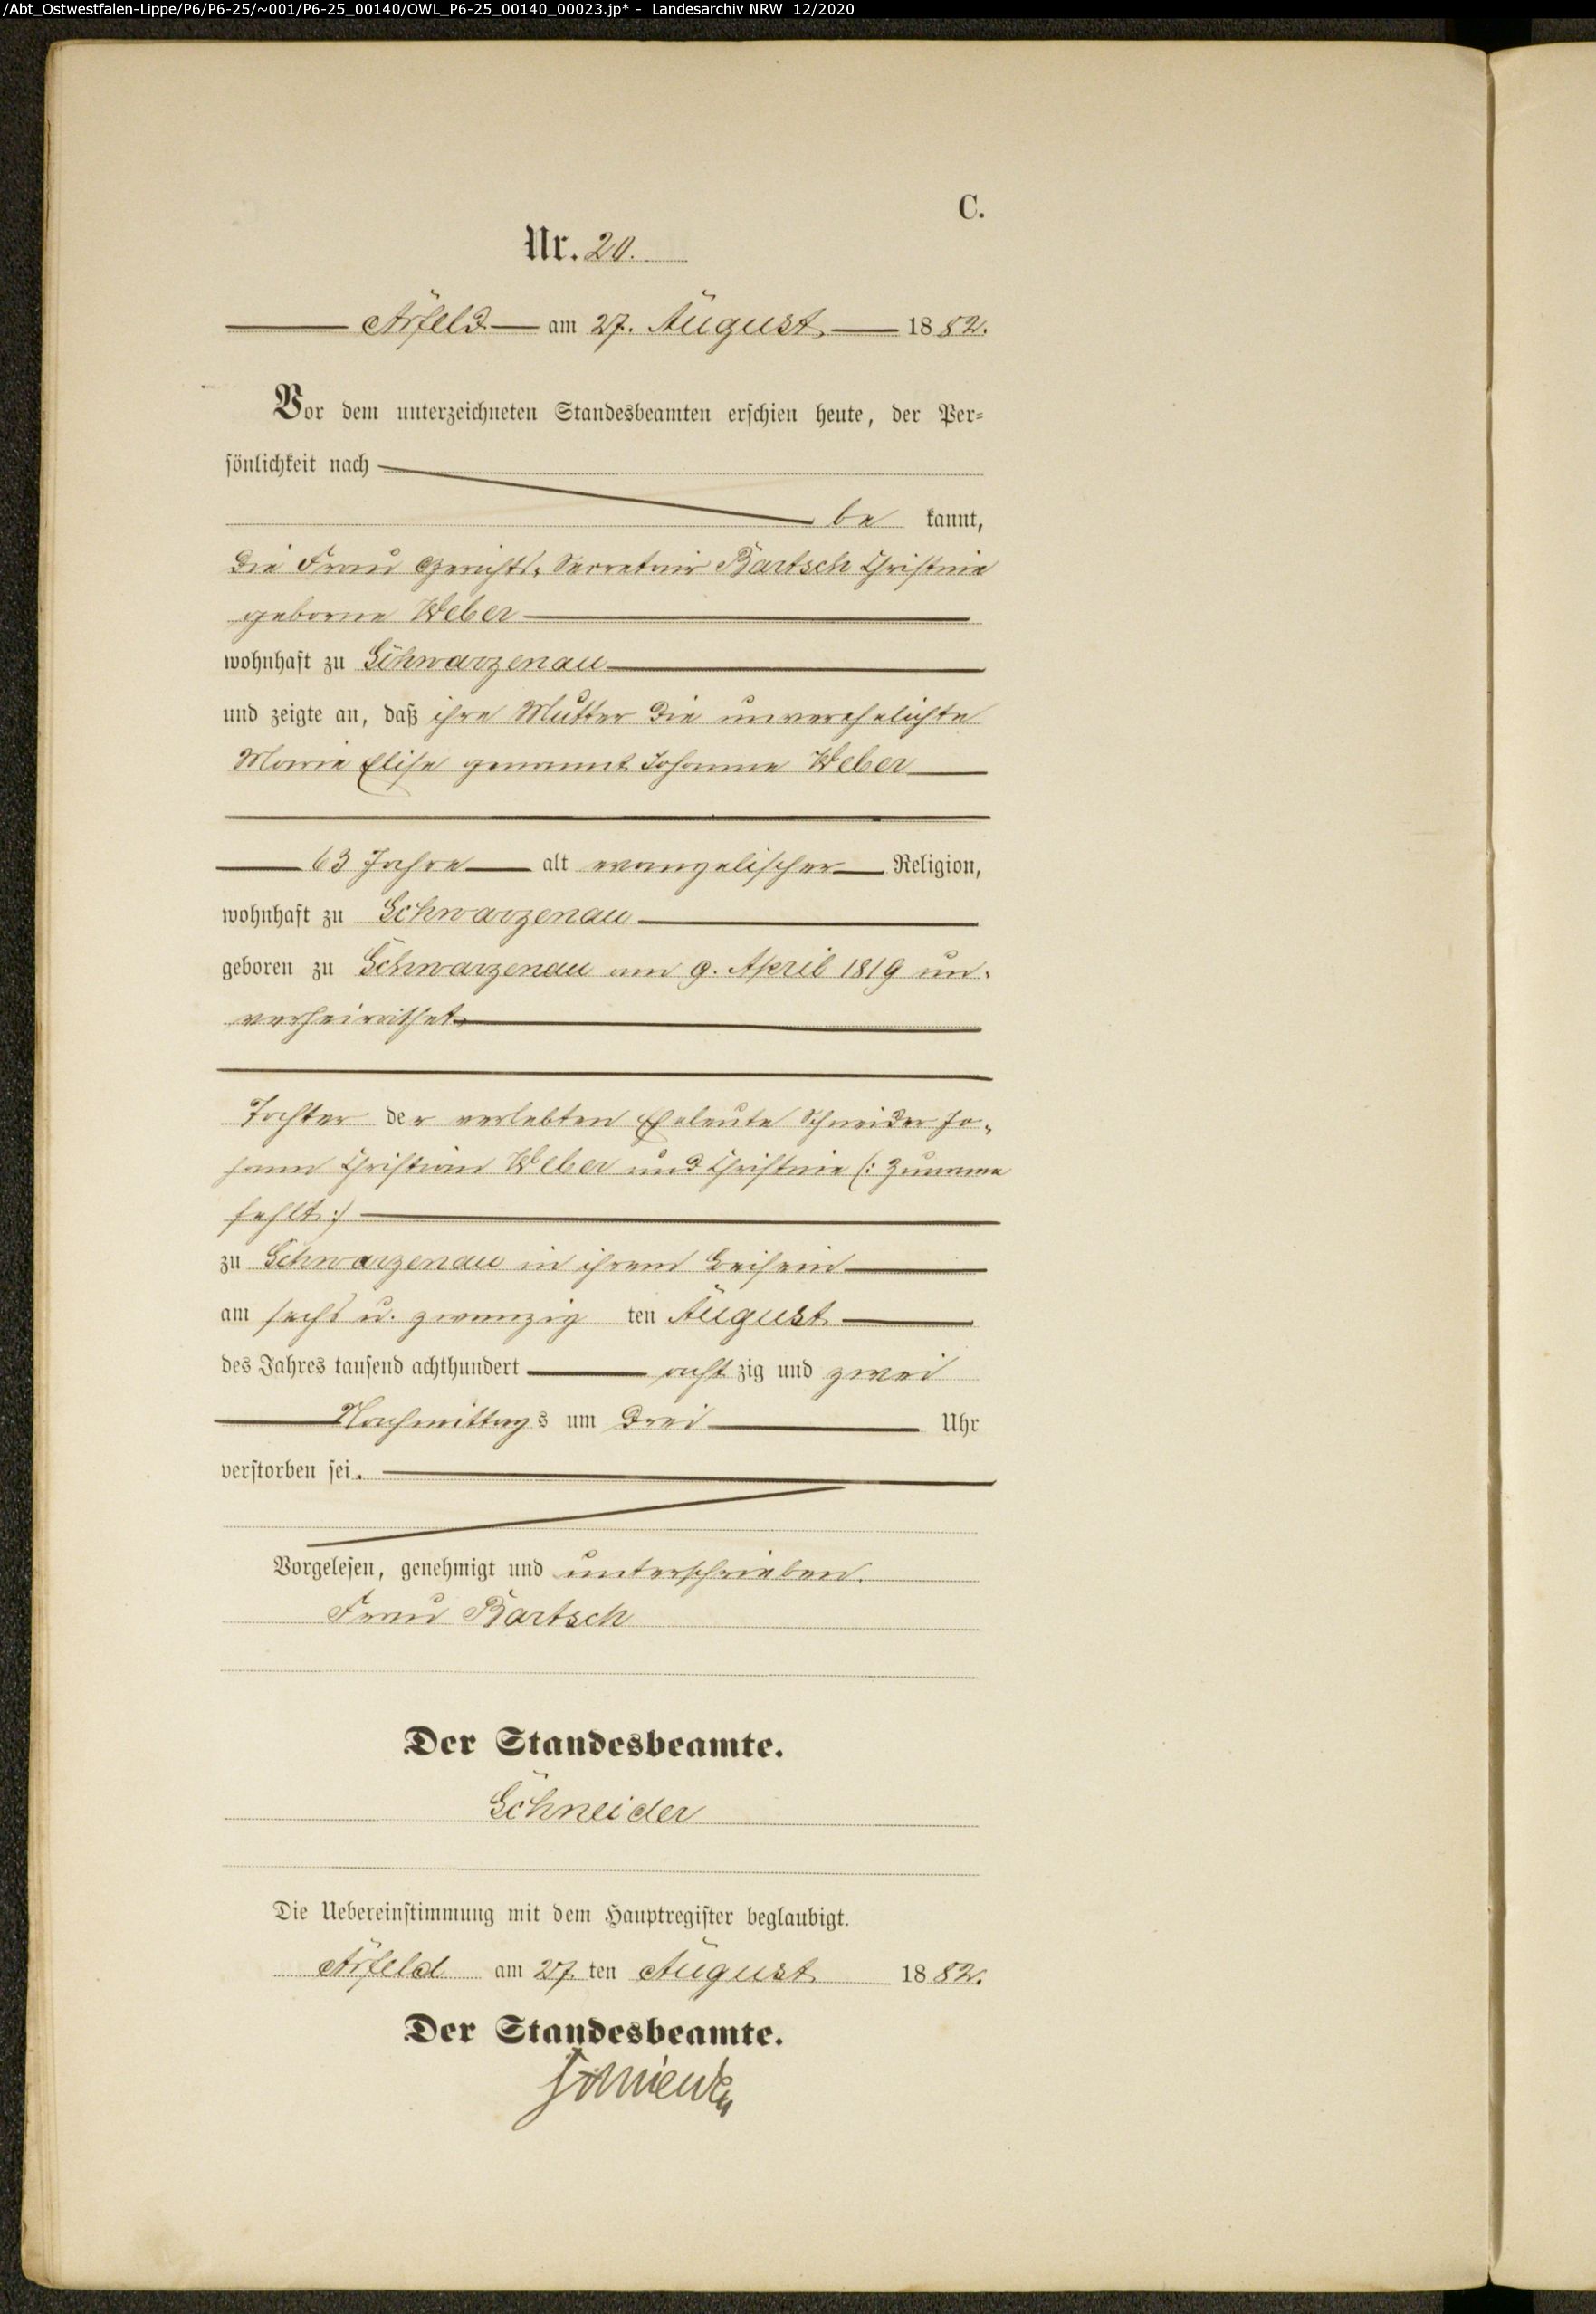 /Abt_Ostwestfalen-Lippe/P6/P6-25/~001/P6-25_00140/OWL_P6-25_00140_00023.jp* - Landesarchiv NRW 12/2020
C.
Nr. 20.
Arfeld am 27. August 1882.
Vor dem unterzeichneten Standesbeamten erschien heute, der Per-
sönlichkeit nach
be kannt,
die Frau Gerichts-Secretair Bartsch Christine
geborne Weber
wohnhaft zu Schwarzenau
und zeigte an, daß ihre Mutter die unverehelichte
Marie Elise genannt Johanne Weber
63 Jahre alt evangelischer Religion,
wohnhaft zu Schwarzenau
geboren zu Schwarzenau am 9. April 1819 un-
verheirathet
Tochter der verlebten Eheleute Schneider Jo-
hann Christian Weber und Christine (: Zuname
fehlt :)
zu Schwarzenau in ihrem Beisein
am sechs u. zwanzig ten August
des Jahres tausend achthundert acht zig und zwei
Nachmittags um drei Uhr
verstorben sei.
Vorgelesen, genehmigt und unterschrieben.
Frau Bartsch
Der Standesbeamte.
Schneider
Die Uebereinstimmung mit dem Hauptregister beglaubigt.
Arfeld am 27 ten August 1882.
Der Standesbeamte.
Schneider